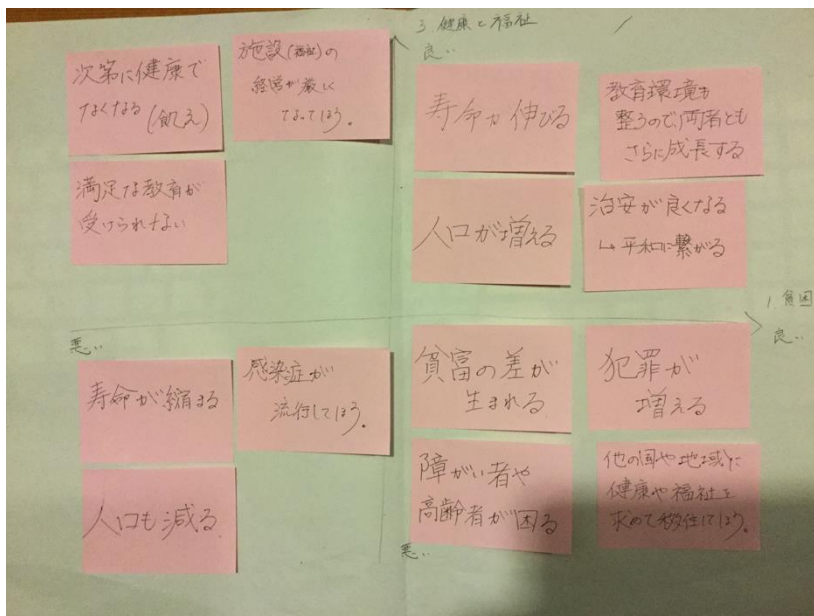 3 健康と福祉
良い
次第に健康で
なくなる(飢え)
施設(福祉)の
経営が厳しく
なってしまう。
満足な教育が
受けられない
寿命が伸びる
教育環境も
整うので両者とも
さらに成長する
人口が増える
治安が良くなる
↳平和に繋がる
1 貧困
良い
悪い
寿命が縮まる
感染症が
流行してしまう。
人口も減る
貧富の差が
生まれる
犯罪が
増える
障がい者や
高齢者が困る
他の国や地域に
健康や福祉を
求めて移住してしまう。
悪い